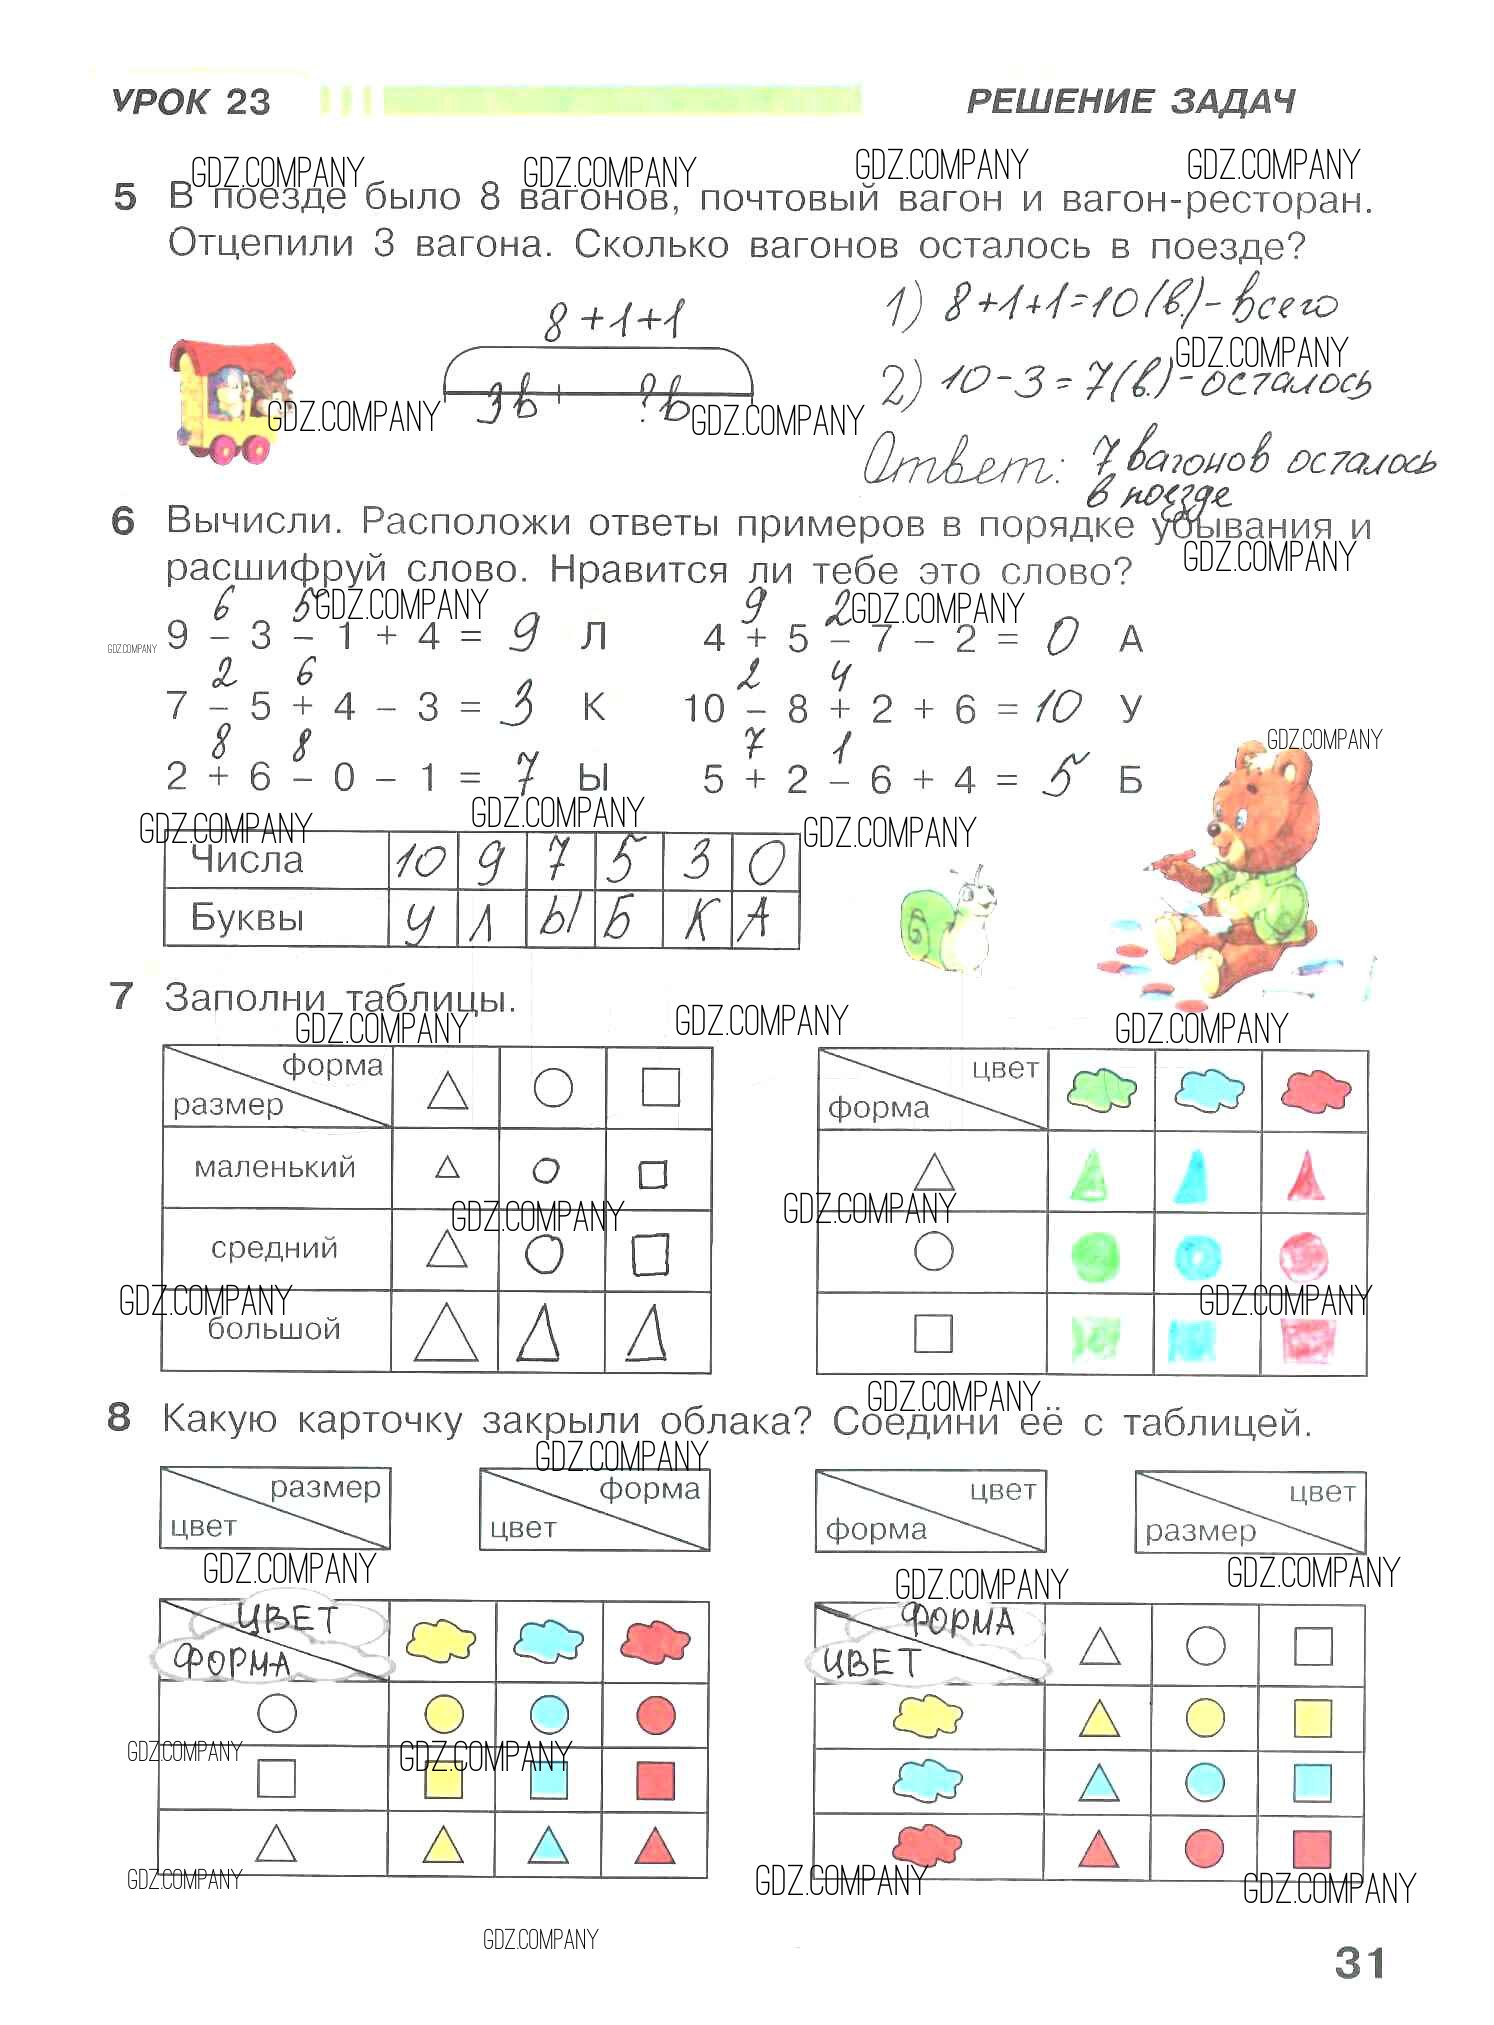 УРОК 23 РЕШЕНИЕ ЗАДАЧ
GDZ.COMPANY GDZ.COMPANY GDZ.COMPANY GDZ.COMPANY
5 В поезде было 8 вагонов, почтовый вагон и вагон-ресторан.
Отцепили 3 вагона. Сколько вагонов осталось в поезде?
8+1+1 1) 8+1+1=10(в.)-всего
GDZ.COMPANY
3в ?в 2) 10-3=7(в.)-осталось
GDZ.COMPANY GDZ.COMPANY
Ответ: 7 вагонов осталось
в поезде
6 Вычисли. Расположи ответы примеров в порядке убывания и
GDZ.COMPANY
расшифруй слово. Нравится ли тебе это слово?
6 5 GDZ.COMPANY 9 2 GDZ.COMPANY
GDZ.COMPANY 9 – 3 – 1 + 4 = 9 Л 4 + 5 – 7 – 2 = 0 А
2 6 2 4
7 – 5 + 4 – 3 = 3 К 10 – 8 + 2 + 6 = 10 У
8 8 7 1 GDZ.COMPANY
2 + 6 – 0 – 1 = 7 Ы 5 + 2 – 6 + 4 = 5 Б
GDZ.COMPANY GDZ.COMPANY GDZ.COMPANY
Числа 10 9 7 5 3 0
Буквы У Л Ы Б К А
7 Заполни таблицы.
GDZ.COMPANY GDZ.COMPANY GDZ.COMPANY
форма цвет
размер форма
маленький
GDZ.COMPANY GDZ.COMPANY
средний
GDZ.COMPANY GDZ.COMPANY
большой
GDZ.COMPANY
8 Какую карточку закрыли облака? Соедини её с таблицей.
GDZ.COMPANY
размер форма цвет цвет
цвет цвет форма размер
GDZ.COMPANY GDZ.COMPANY GDZ.COMPANY
ЦВЕТ ФОРМА
ФОРМА ЦВЕТ
GDZ.COMPANY GDZ.COMPANY
GDZ.COMPANY GDZ.COMPANY GDZ.COMPANY
GDZ.COMPANY
31